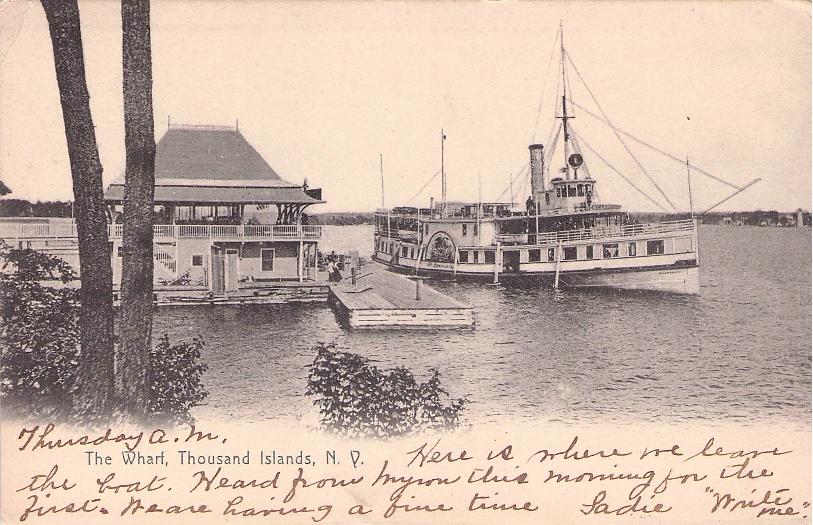 Thursday A.M.
The Wharf, Thousand Islands, N. Y.
Here is where we leave
the boat. Heard from Myron this morning for the
first. We are having a fine time Sadie "Write
me."